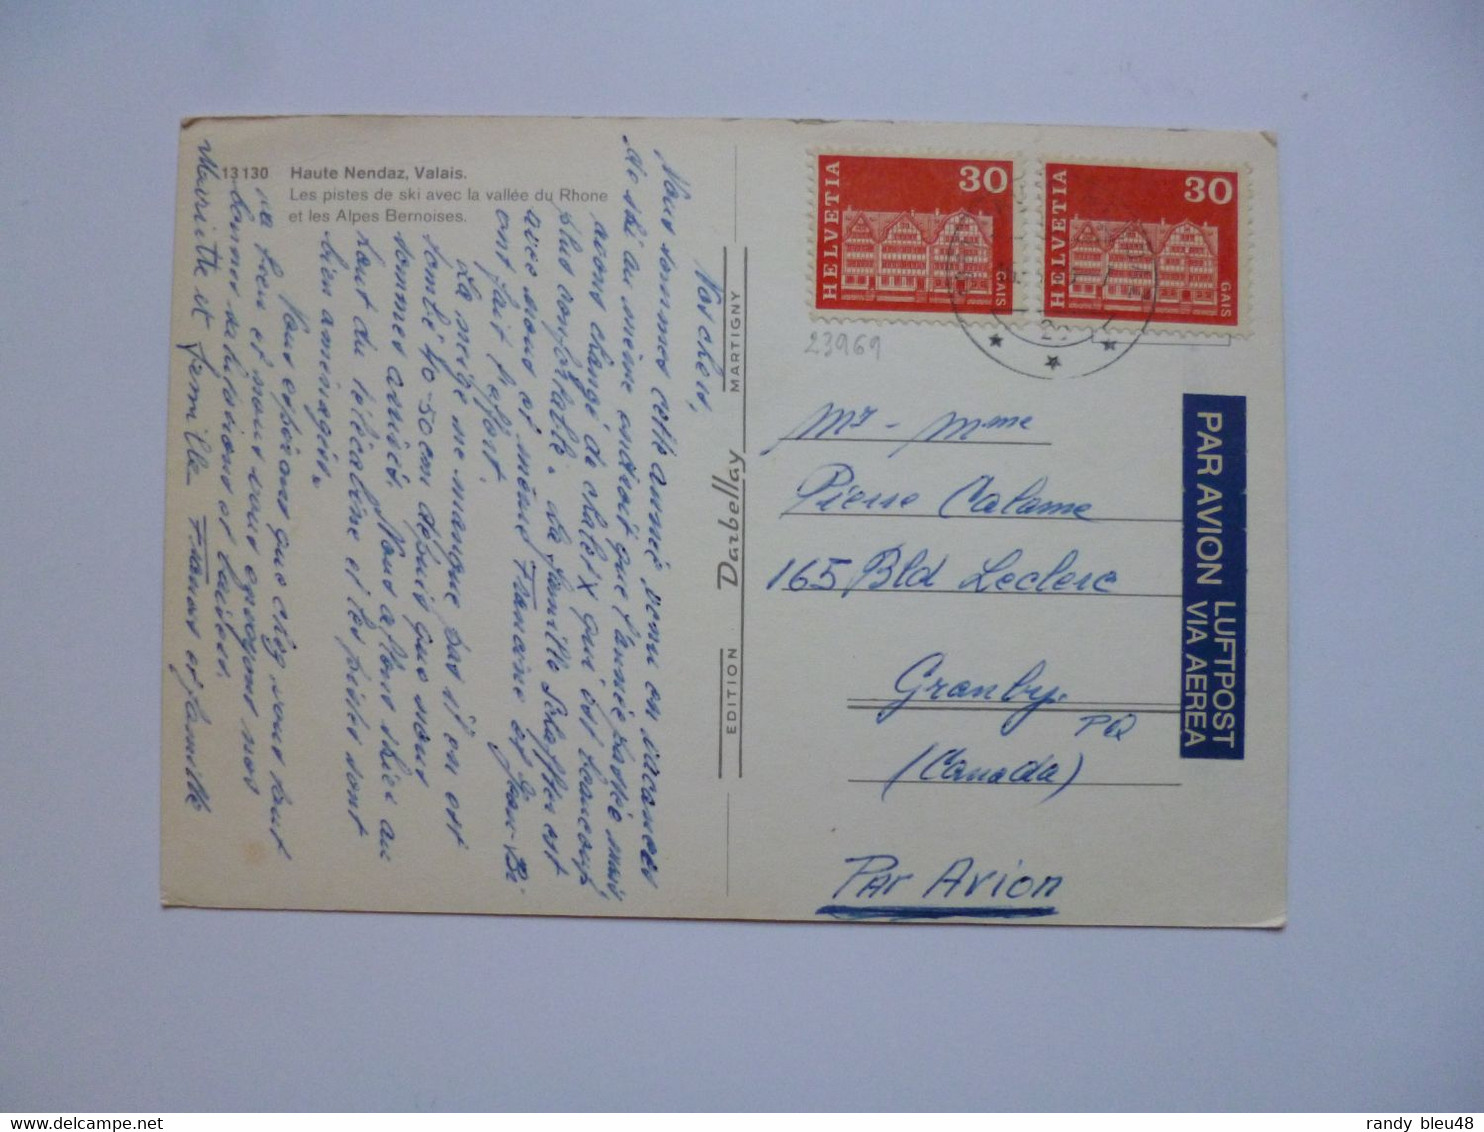 13130 Haute Nendaz, Valais.
Les pistes de ski avec la vallée du Rhone
et les Alpes Bernoises.
Nos chers,
Nous sommes cette année venu en vacances
de ski au même endroit que l'année passée mais
avons changé de chalet X qui est beaucoup
plus confortable. La famille Schaffter est
avec nous et même Francine et Jean-
ont fait
La neige ne manque pas il en est
tombé 40-50 cm depuis que nous
sommes arrivés. Nous allons skier au
bout du télécabine et les pistes sont
bien aménagées.
Nous espérons que chez vous tout
va bien et nous vous envoyons nos
bonnes salutations et baisers.
Mariette et famille Francis et famille
EDITION Darbellay MARTIGNY
HELVETIA 30 GAIS
HELVETIA 30 GAIS
23969
Mr - Mme
Pierre Calame
165 Bld Leclerc
Granby. PQ
(Canada)
Par Avion
PAR AVION LUFTPOST
VIA AEREA
delcampe.net
randy bleu48